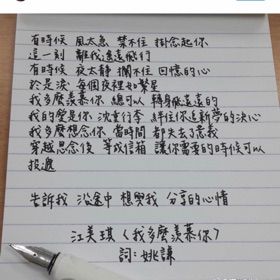 有時候 風太急 禁不住 掛念起你
這一刻 離我遙遠飛行
有時候 夜太靜 攔不住 回憶的心
於是淚 每個夜裡如繁星
我多麼羨慕你 總可以 轉身飛遠遠的
我的愛是你 沈重行李 絆住你追新夢的決心
我多麼想念你 當時間 都失了意義
穿越思念後 等成信箱 讓你需要的時候可以
投遞
告訴我 沿途中 想與我 分享的心情
江美琪〈我多麼羨慕你〉
詞：姚謙